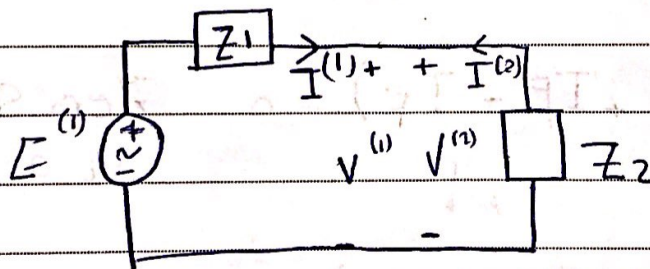 Z1
I^(1) + + I^(2)
E^(1) + ~ -
V^(1) V^(2) Z2
- -